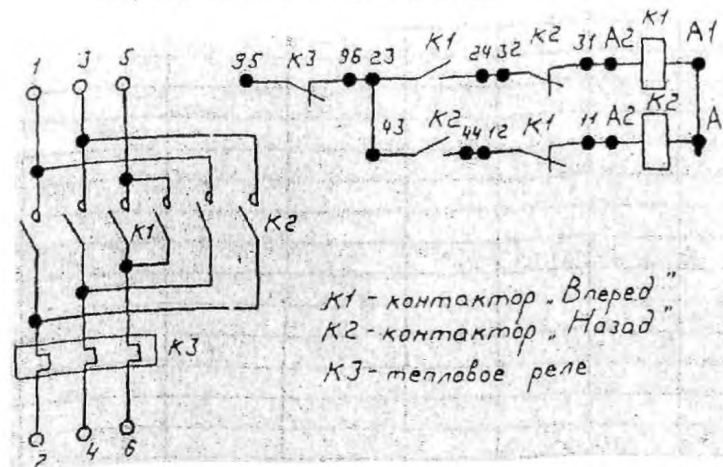 1 3 5
95 K3 96 23 K1 24 32 K2 31 A2 K1 A1
43 K2 44 12 K1 11 A2 K2 A
K1 K2
K3
2 4 6
K1 - контактор „Вперед"
K2 - контактор „Назад"
K3 - тепловое реле